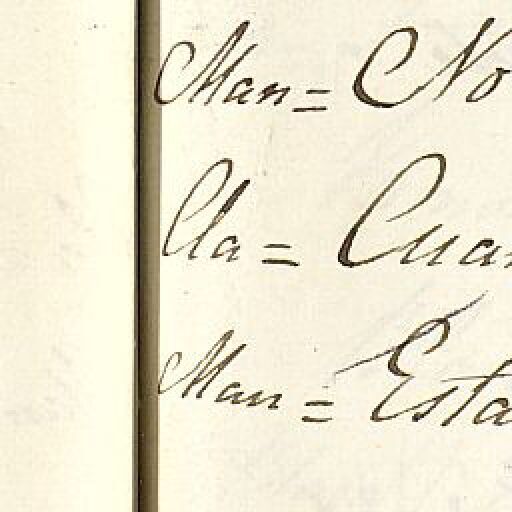 Man = No
Cla = Cuan
Man = Esta